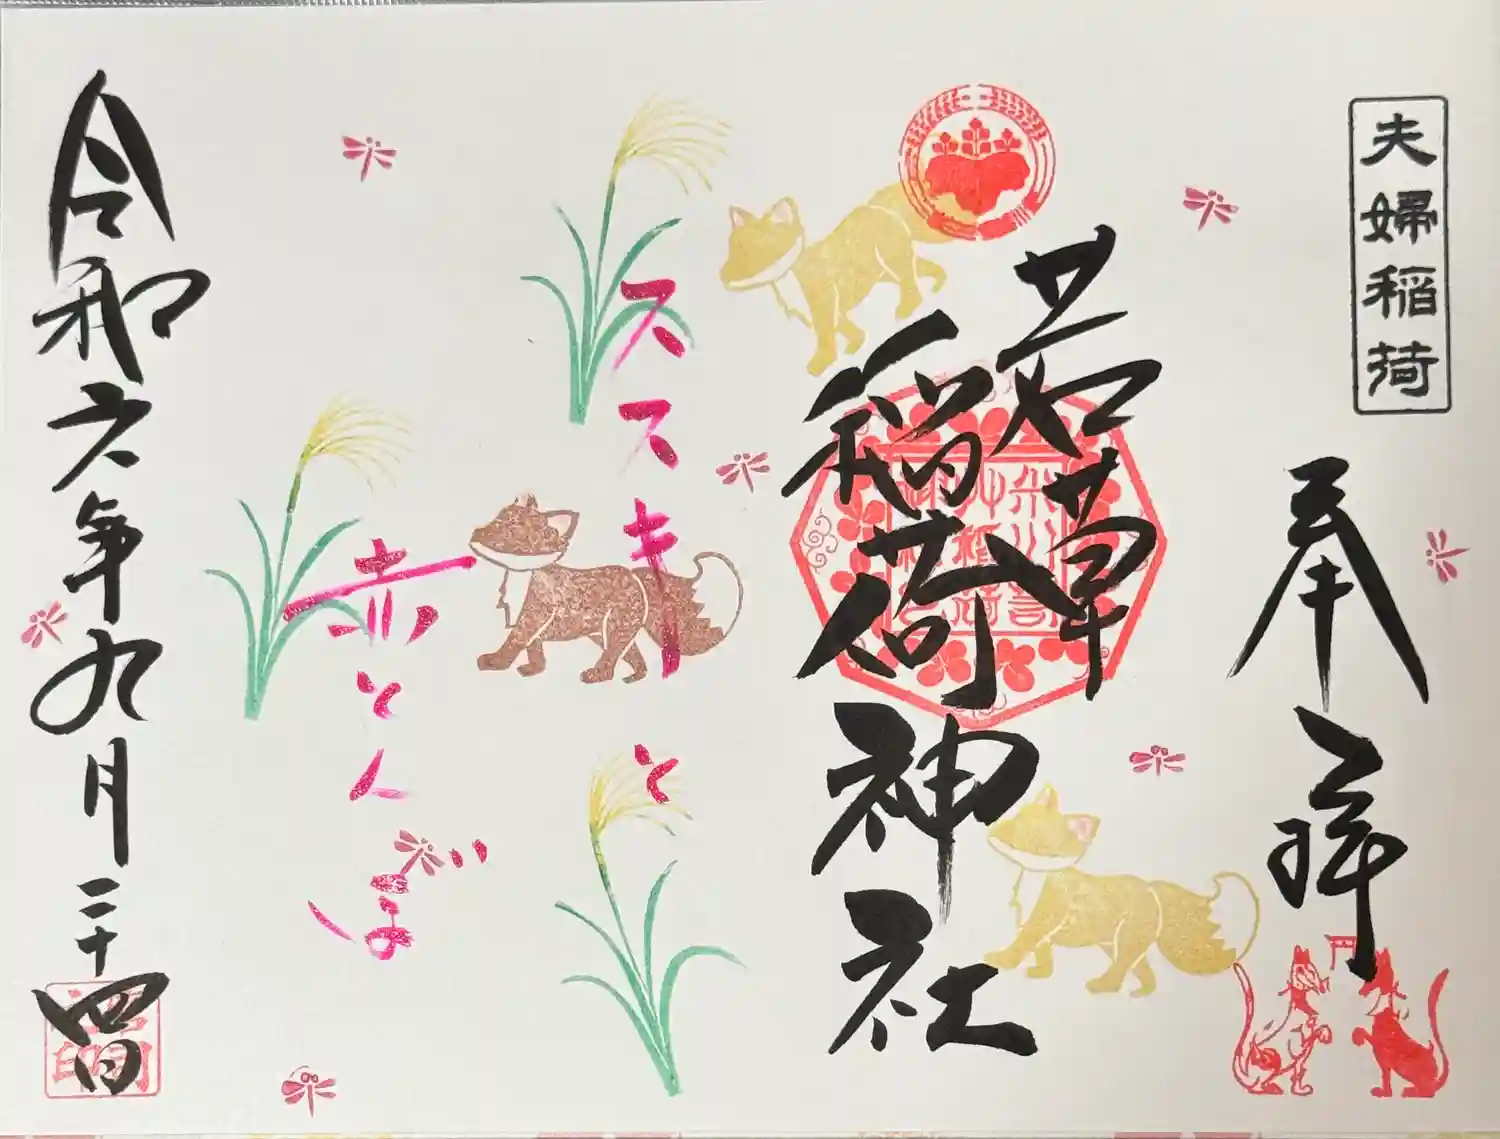 夫婦稲荷
奉拝
若草
稲荷神社
ススキと
赤とんぼ
令和六年九月二十四日